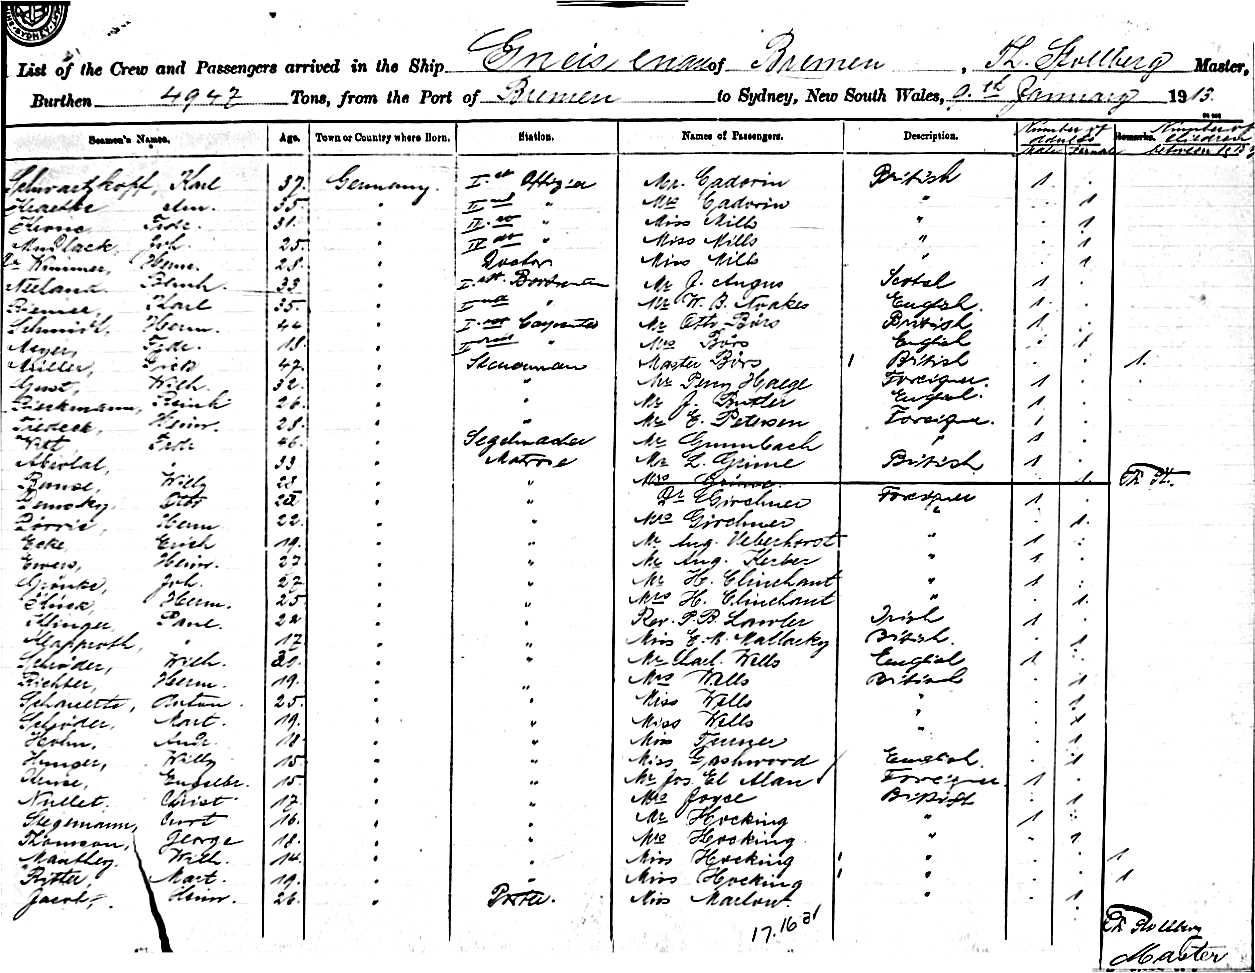 SYDNEY
List of the Crew and Passengers arrived in the Ship Gneisenau of Bremen, Th. Stollberg Master,
Burthen 4947 Tons, from the Port of Bremen to Sydney, New South Wales, 9.th January 1913.
Seamen's Names. Age. Town or Country where Born. Station. Names of Passengers. Description. Number of Adults Male Female Remarks. Number of Children between
Schwartzkopf, Karl 37. Germany. I. Offizier Mr. Cadorin British 1
35. " II " Mrs Cadorin " 1
Frdr. 31. " II " Miss Mills " 1
Mudlack, Joh. 25. " IV " Miss Mills " 1
Dr Wimmer, Herm. 28. " Doctor Miss Mills " 1
Nieland 33 " I. Bootsman Mr J. Angus Scotsl 1
Karl 35. " II " Mr W. B. Noakes English. 1
Schmidt, Herm. 44 " I. Carpenter Mr Otto Börs British 1
Meyer, Frdr. 18. " II " Mrs Börs English 1
Miller, Erick 47. " Steurman Master Börs 1 British 1.
Gust, Wilh. 32. " " Mr Percy Haege Foreigner. 1
Bierkmann, Reinh 26. " " Mr J. Butler English. 1
Heinr. 28. " " Mr E. Petersen Foreigner. 1
Witt Frdr 46. " Segelmacher Mr Grumbach " 1
33 " Matrose Mr L. Grime British 1
Willy 23 " " Mrs Grime 1 Th. St.
Otto " " Dr Girchner Foreigner 1
Herm 22. " " Mrs Girchner " 1.
Ecke, Erich 19. " " Mr Aug. Ueberhorst " 1
Ewers, Heinr. 23 " " Mr Aug. Kerber " 1
Joh. 27 " " Mr H. Clinchant " 1
Herm. 25 " " Mrs H. Clinchant " 1.
Ellinger, Paul 22 " " Rev. P. B. Lawler Irish 1
Klapproth, " 17 " " Miss E. M. Mallacky British. 1
Schröder, Wilh. " " Mr Carl. Wells English 1
Richter, Herm. 19. " " Mrs Wells British 1
Anton 25. " " Miss Wells " 1
Schröder, Mart. 19. " " Miss Wells " 1
Hohn, Andr. 18 " " Miss Turner 1
Hunger, Willy 15 " " Miss Gashwood English. 1
Engelbr. 15. " " Mr Jos. El Alan Foreigner 1
Nullet. Christ 17. " " Mrs Joyce British 1
Stegemann, Curt 16. " " Mr Hocking " 1
Thomson, George 18. " " Mrs Hocking " 1
Manthey. Wilh. 14. " " Miss Hocking 1 " 1
Ritter, Mart. 19. " " Miss Hocking 1 " 1
Jacob, Heinr. 26. " Miss Marlow. " 1
17.16
Th. Stollberg
Master